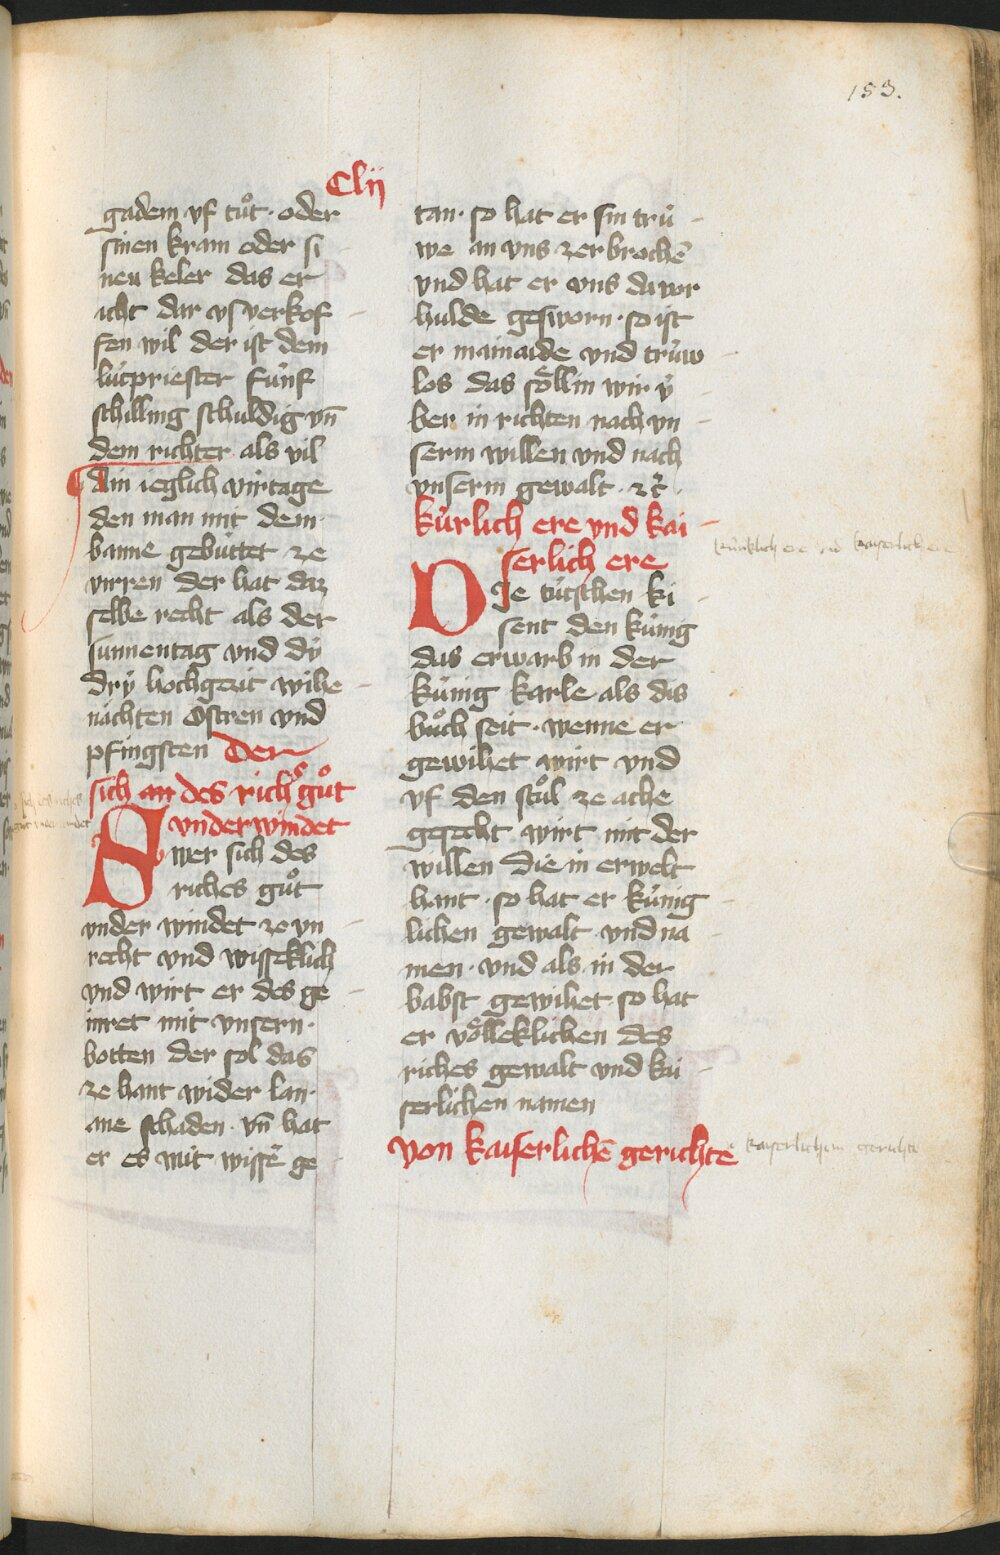 153.
Clij
gadem vf tuͦt · oder
sinen kram oder si
nen keler das er
icht dar vs verkof
fen wil der ist dem
lútpriester fúnf
schilling schuldig vn̄
dem richter als vil
Ain ieglich virtage
den man mit dem
banne gebúttet ze
virren der hat daz
selbe recht als der
sunnentag vnd dÿ
drÿ hochgezit wihe
nächten Ostren vnd
pfingsten Der
sich an des richs guͦt
vnderwindet
Swer sich des
riches guͦt
vnder windet ze vn
recht vnd wisseklich
vnd wirt er des ge
inret mit vnsern
botten der sol das
ze hant wider lan
ane schaden · vn̄ hat
er es mit wissē ge
tan · so hat er sin trú
we an vns zerbrochē
vnd hat er vns da vor
hulde gesworn · so ist
er mainaide vnd trúw
los das soͤllin wir v́
ber in richten nach vn
serm willen vnd nach
vnserm gewalt · ⁊c̄ ·
kúrlich ere vnd kai
serlich ere
DJe tútschen ki
sent den kúnig
das erwarb in der
kúnig karle als dis
buͦch seit · wenne er
gewihet wirt vnd
vf den stuͦl ze ache
gesecht wirt mit der
willen die in erwelt
hant · so hat er kúnig
lichen gewalt vnd na
men · vnd als in der
babst gewihet so hat
er voͤlleklichen des
riches gewalt vnd kai
serlichen namen
Von kaiserlichē gerichte
kúnklich ere vnd kayserlich ere
kayserlichem gerichte